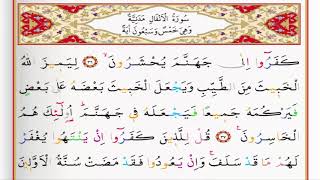 سُورَةُ الْاَنْفَالِ مَدَنِيَّةٌ
وَهِيَ خَمْسٌ وَسَبْعُونَ اٰيَةً
كَفَرُٓوا اِلٰى جَهَنَّمَ يُحْشَرُونَۙ ﴿٣٦﴾ لِيَم۪يزَ اللّٰهُ
الْخَب۪يثَ مِنَ الطَّيِّبِ وَيَجْعَلَ الْخَب۪يثَ بَعْضَهُ عَلٰى بَعْضٍ
فَيَرْكُمَهُ جَم۪يعًا فَيَجْعَلَهُ ف۪ي جَهَنَّمَۜ اُو۬لٰٓئِكَ هُمُ
الْخَاسِرُونَ۟ ﴿٣٧﴾ قُلْ لِلَّذ۪ينَ كَفَرُٓوا اِنْ يَنْتَهُوا يُغْفَرْ
لَهُمْ مَا قَدْ سَلَفَۚ وَاِنْ يَعُودُوا فَقَدْ مَضَتْ سُنَّةُ الْاَوَّل۪ينَ